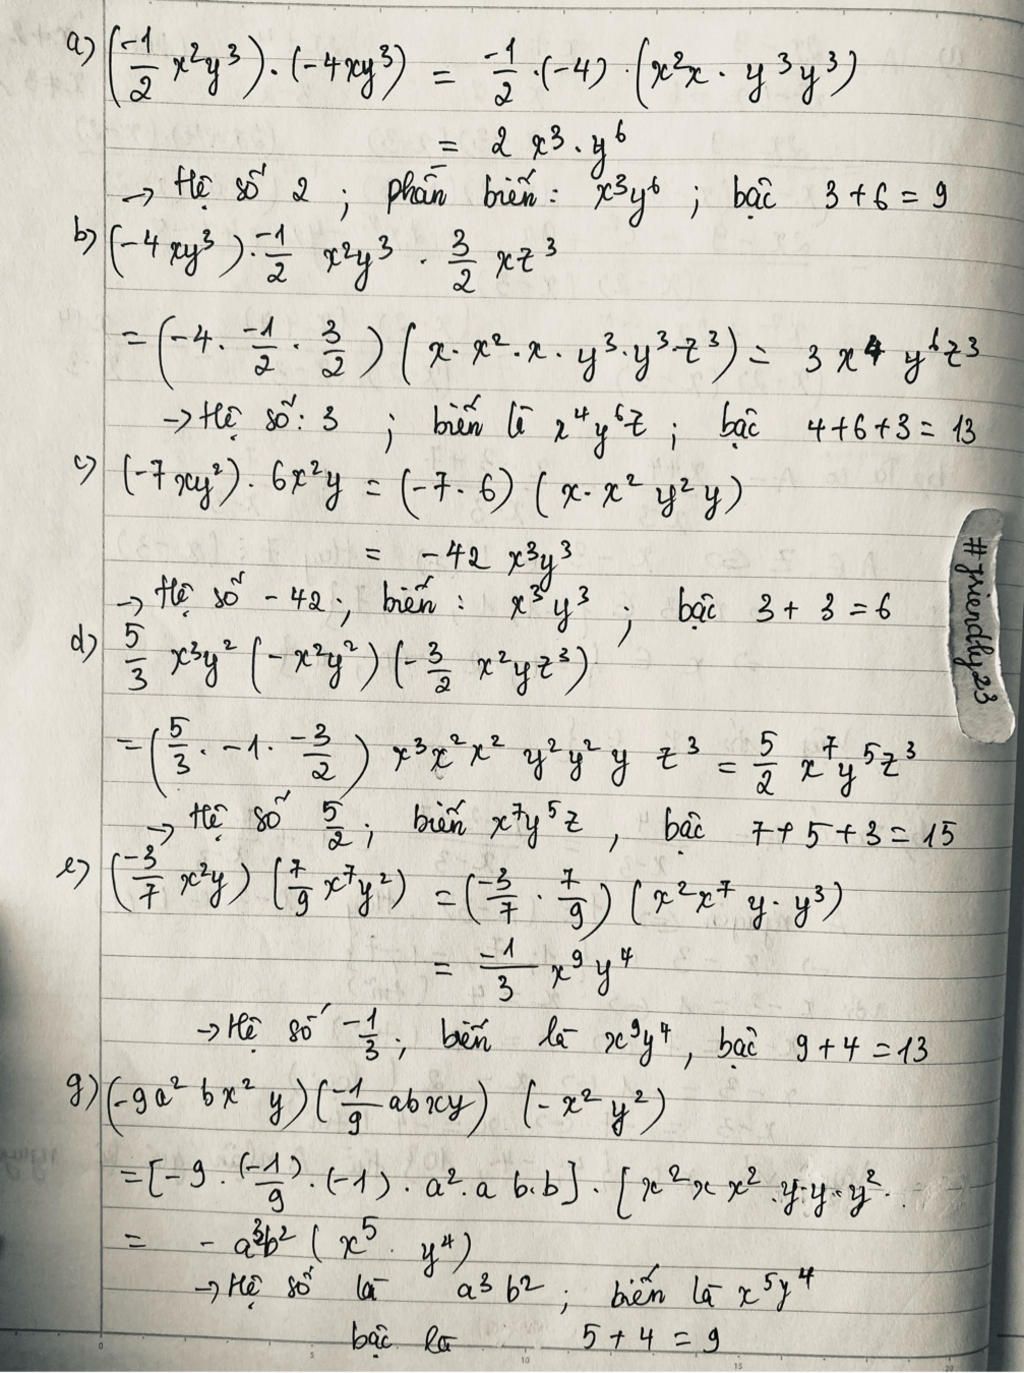 a) (-1/2 x²y³) . (-4xy³) = -1/2 . (-4) . (x²x . y³y³)
= 2 x³ . y⁶
→ Hệ số 2 ; phần biến : x³y⁶ ; bậc 3 + 6 = 9
b) (-4xy³) . -1/2 x²y³ . 3/2 xz³
= (-4 . -1/2 . 3/2) (x . x² . x . y³ . y³ . z³) = 3 x⁴ y⁶z³
→ Hệ số : 3 ; biến là x⁴y⁶z ; bậc 4+6+3 = 13
c) (-7xy²) . 6x²y = (-7 . 6) (x . x² y² y)
= -42 x³y³
→ Hệ số -42 ; biến : x³y³ ; bậc 3 + 3 = 6
d) 5/3 x³y² (-x²y²) (-3/2 x²yz³)
= (5/3 . -1 . -3/2) x³x²x² y²y² y z³ = 5/2 x⁷y⁵z³
→ Hệ số 5/2 ; biến x⁷y⁵z , bậc 7+5+3 = 15
e) (-3/7 x²y) (7/9 x⁷y²) = (-3/7 . 7/9) (x²x⁷ y . y³)
= -1/3 x⁹y⁴
→ Hệ số -1/3 ; biến là x⁹y⁴ , bậc 9 + 4 = 13
g) (-9a² bx² y) (-1/9 abxy) (-x² y²)
= [-9 . (-1/9) . (-1) . a² . a b . b] . [x² x x² . y . y . y² .
= - a³b² (x⁵ . y⁴)
→ Hệ số là a³b² ; biến là x⁵y⁴
bậc là 5 + 4 = 9
#friendly23